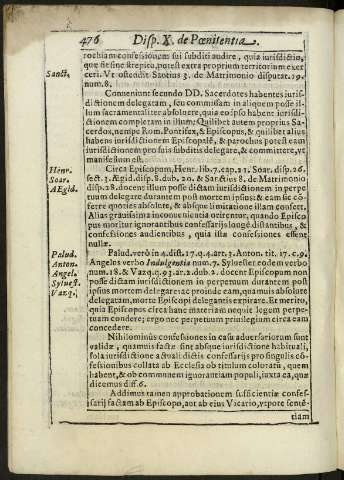 476 Disp. X. de Pœnitentia.
rochiam confessionem sui subditi audire, quia iurisdictio,
quæ sit sine strepitu, potest extra proprium territorium exer
Sanct. ceri. Vt ostendit Sanctius 3. de Matrimonio disputat. 29.
num. 8.
Conueniunt secundo DD. Sacerdotes habentes iuris-
dictionem delegatam, seu commissam in aliquem posse il-
lum sacramentaliter absoluere, quia eo ipso habent iurisdi-
ctionem completam in illum; Quilibet autem proprius Sa-
cerdos, nempe Rom. Pontifex, & Episcopus, & quilibet alius
habens iurisdictionem Episcopalē, & parochus potest eam
iurisdictionem pro suis subditis delegare, & committere, vt
manifestum est.
Henr. Circa Episcopum, Henr. lib. 7. cap. 21. Soar. disp. 26.
Soar. sect. 3. Egid. disp. 8. dub. 20. & Sanctius 8. de Matrimonio
AEgid. disp. 28. docent illum posse dictam iurisdictionem in perpe
tuum delegare durantem post mortem ipsus; & eam sic cō-
ferre quoties absoluit, & absque limitatione illam confert.
Alias grauissima inconuenientia orirentur, quando Episco
pus moritur ignorantibus confessarijs longè distantibus, &
confessiones audientibus, quia illæ confessiones essent
nullæ.
Palud. Palud. verò in 4. dist. 17. q. 4. art. 3. Anton. tit. 17. c. 9.
Anton. Angelus verbo Indulgentia num. 7. Syluester eodem verbo
Angel. num. 18. & Vazq. q. 93. ar. 2. dub. 2. docent Episcopum non
Syluest. posse dictam iurisdictionem in perpetuum durantem post
Vazq. ipsus mortem delegare: ac proinde eam, quamuis absolutè
delegatam, morte Episcopi delegantis expirare. Et merito,
quia Episcopus circa hanc materiam nequit legem perpe-
tuam condere; ergo nec perpetuum priuilegium circa eam
concedere.
Nihilominus confessiones in casu aduersariorum sunt
validæ, quamuis factæ sine absque iurisdictione habituali,
sola iurisdictione actuali dictis confessarijs pro singulis cō-
fessionibus collata ab Ecclesia ob titulum coloratū, quem
habent, & ob communem ignorantiam populi, iuxta ea, quæ
dicemus diff. 6.
Addimus tamen approbationem sufficientiæ confes-
sarij factam ab Episcopo, aut ab eius Vicario, vtpote sentē-
tiam